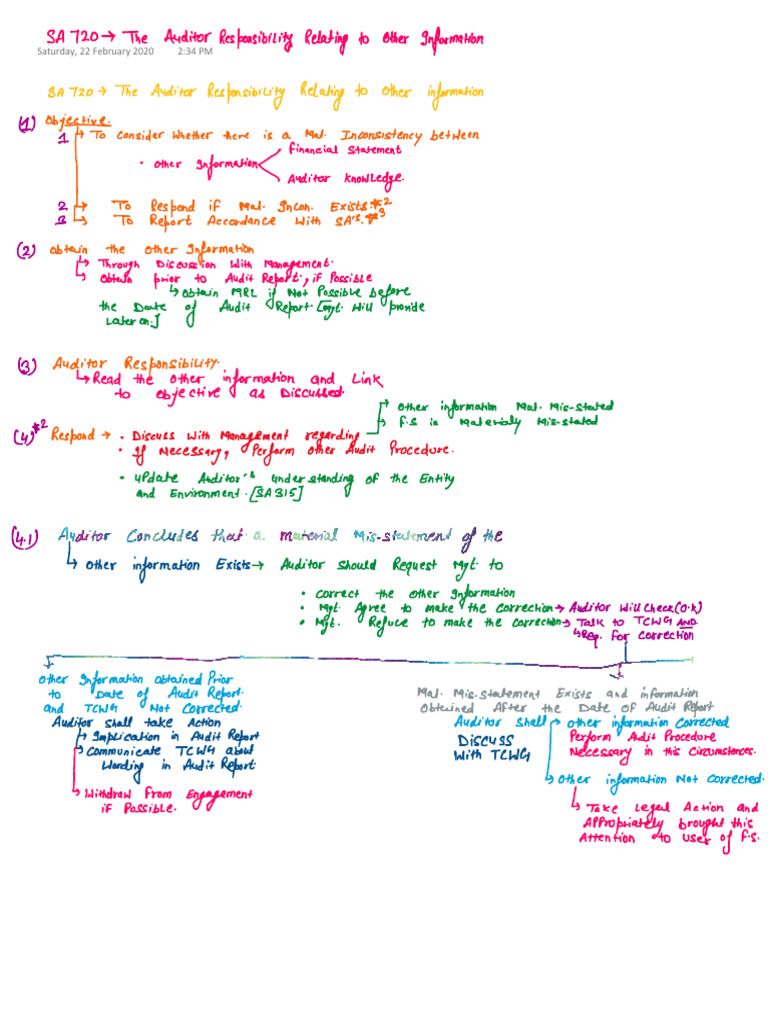 SA 720 → The Auditor Responsibility Relating to Other Information
Saturday, 22 February 2020 2:34 PM
SA 720 → The Auditor Responsibility Relating to Other information
(1) Objective.
1 → To Consider Whether there is a Mat. Inconsistency between
• Other Information
Financial Statement
Auditor Knowledge.
2 → To Respond if Mat. Incon. Exists *2
3 → To Report Accordance With SA's. *3
(2) Obtain the Other Information
→ Through Discussion With Management.
→ Obtain prior to Audit Report, if Possible
→ Obtain MRL if Not Possible before
the Date of Audit Report. [Mgt. Will provide
Later on.]
(3) Auditor Responsibility.
→ Read the Other information and Link
to Objective as Discussed.
(4) *2 Respond → • Discuss With Management regarding
→ Other information Mat. Mis-stated
→ F.S is Materialy Mis-stated
• If Necessary, Perform Other Audit Procedure.
• Update Auditor's Understanding of the Entity
and Environment. [SA 315]
(4.1) Auditor Concludes that a material Mis-statement of the
→ Other information Exists → Auditor Should Request Mgt. to
• Correct the Other Information
• Mgt. Agree to make the Correction → Auditor Will Check (O.K)
• Mgt. Refuce to make the Correction → Talk to TCWG AND
→ Req. For Correction
Other Information Obtained Prior
to Date of Audit Report
and TCWG Not Corrected.
Auditor shall take Action
→ Implication in Audit Report
→ Communicate TCWG about
Wording in Audit Report
→ Withdraw From Engagement
if Possible.
Mat. Mis-statement Exists and information
Obtained After the Date of Audit Report
Auditor Shall
Discuss
With TCWG
→ Other information Corrected
Perform Audit Procedure
Necessary in this Circumstances.
→ Other information Not Corrected.
→ Take Legal Action and
Appropriately brought this
Attention to User of F.S.